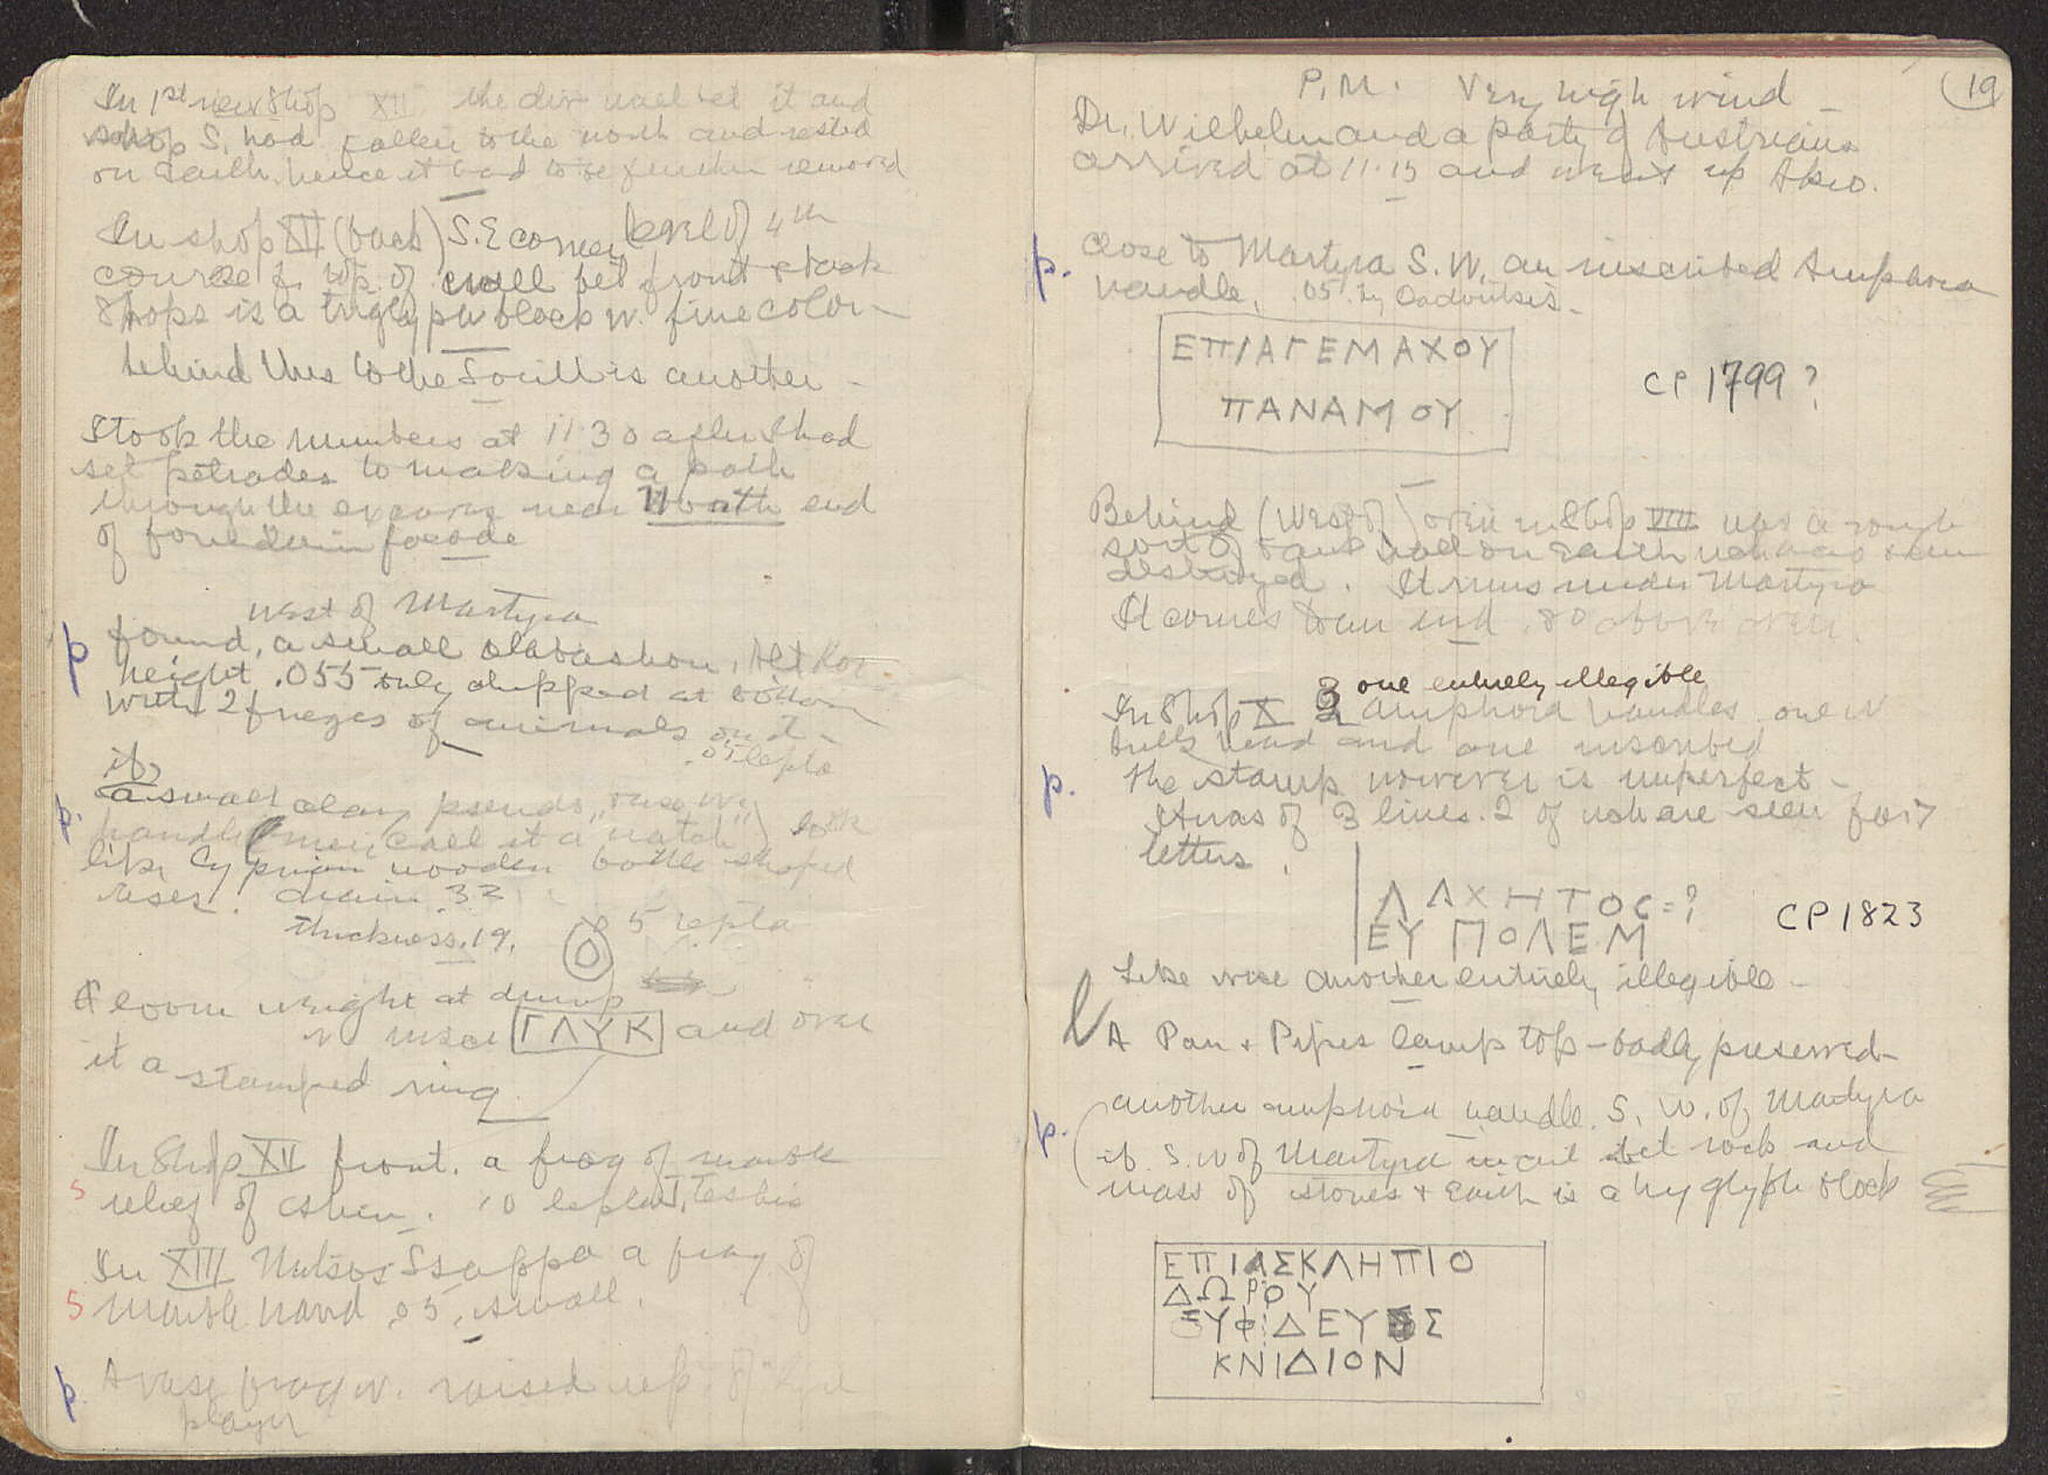 In 1st new shop XII the div wall bet it and
shop S. had fallen to the north and rested
on earth, hence it had to be further removed
In shop XII (back) S.E corner level of 4th
course f. top of wall bet front & back
Shops is a triglyph block w. fine color
behind this to the South is another -
I took the numbers at 11.30 after I had
set petrades to making a path
through the excavs near North end
of fountain facade
west of Martyra
p found, a small alabastron,
height .055 only chipped at bottom
with 2 friezes of animals on it -
.05 lepta
ib,
p. a small clay pseudo "vase w
handle (men call it a watch") look
like Cyprian wooden bottle shaped
vases! diam. 32
thickness .19. 5 lepta
A loom weight at dump
w inscr ΓΛΥΚ and over
it a stamped ring
In Shop XII front. a frag of marble
5 relief of 10 lepta
In XIII a frag of
5 marble hand .05, small.
p. A vase frag w. raised rep. of lyre
player
19
P.M. Very high wind -
Dr. Wilhelm and a party of Austrians
arrived at 11.15 and went up Akro.
p. Close to Martyra S.W. an inscribed Amphora
handle, .05. by
ΕΠΙΑΓΕΜΑΧΟΥ
ΠΑΝΑΜΟΥ
CP 1799?
Behind (West of) oven in Shop VIII was a rough
sort of wall on earth wh was
destroyed. It runs under Martyra
It comes to an end .80 above oven.
one entirely illegible
In Shop X 3 amphora handles one w
bulls head and one inscribed
p. the stamp however is imperfect -
It was of 3 lines. 2 of wh are seen for 7
letters.
ΛΑΧΗΤΟС=?
ΕΥΠΟΛΕΜ
CP 1823
Likewise another entirely illegible -
L A Pan & Pipes lamp top - badly preserved -
another amphora handle. S.W. of Martyra
p. ib. S.W of Martyra in cut bet rock and
mass of stones & earth is a tryglyph block
ΕΠΙΑΣΚΛΗΠΙΟ
ΔΩΡΟΥ
ΕΥΦ.ΔΕΥΣ
ΚΝΙΔΙΟΝ